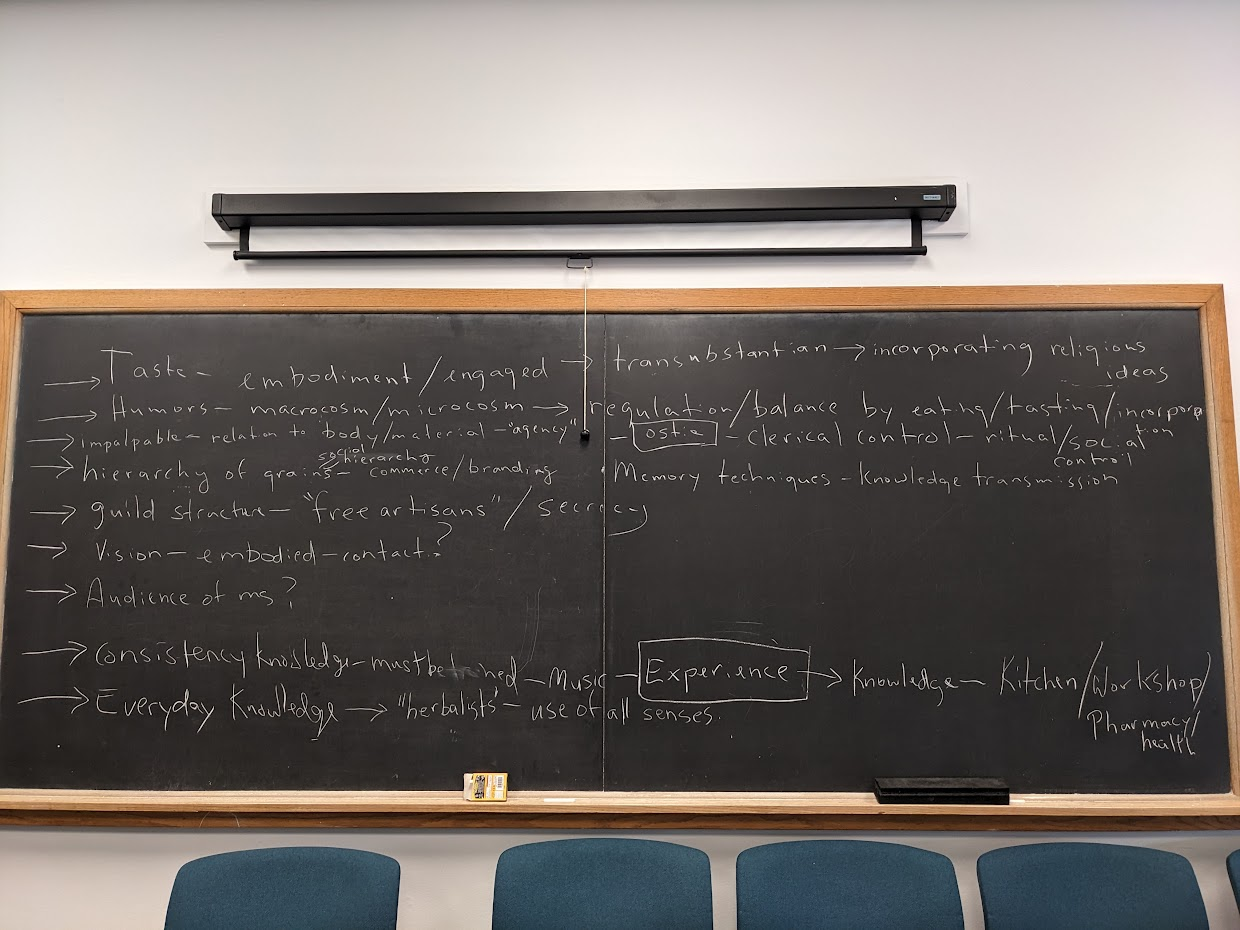 → Taste – embodiment/engaged → transubstantian → incorporating religious
ideas
→ Humors – macrocosm/microcosm → regulation/balance by eating/tasting/incorpora
tion
→ Impalpable – relation to body/material – "agency" – ostie – clerical control – ritual/social
control
social
hierarchy
→ hierarchy of grains – commerce/branding Memory techniques – Knowledge transmission
→ guild structure – "free artisans" / secrecy
→ Vision – embodied – contact?
→ Audience of ms?
→ Consistency knowledge – must be – Music – Experience → Knowledge – Kitchen/Workshop/
Pharmacy/
health
→ Everyday Knowledge → "herbalists" – use of all senses.